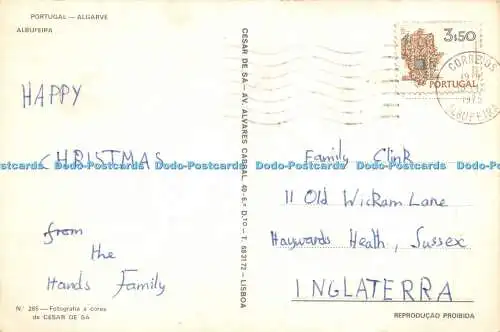 PORTUGAL — ALGARVE
ALBUFEIRA
HAPPY
CHRISTMAS
from
the
Hands Family
Nº 285 — Fotografia a cores
de CÉSAR DE SÁ
CÉSAR DE SÁ — AV. ALVARES CABRAL, 40-6.º D.TO — T. 683172 — LISBOA
3$50
PORTUGAL
CORREIOS
1975
ALBUFEIRA
Family Clink
11 Old Wickam Lane
Haywards Heath, Sussex
INGLATERRA
REPRODUÇÃO PROIBIDA
Dodo-Postcards Dodo-Postcards Dodo-Postcards Dodo-Postcards Dodo-Postcards